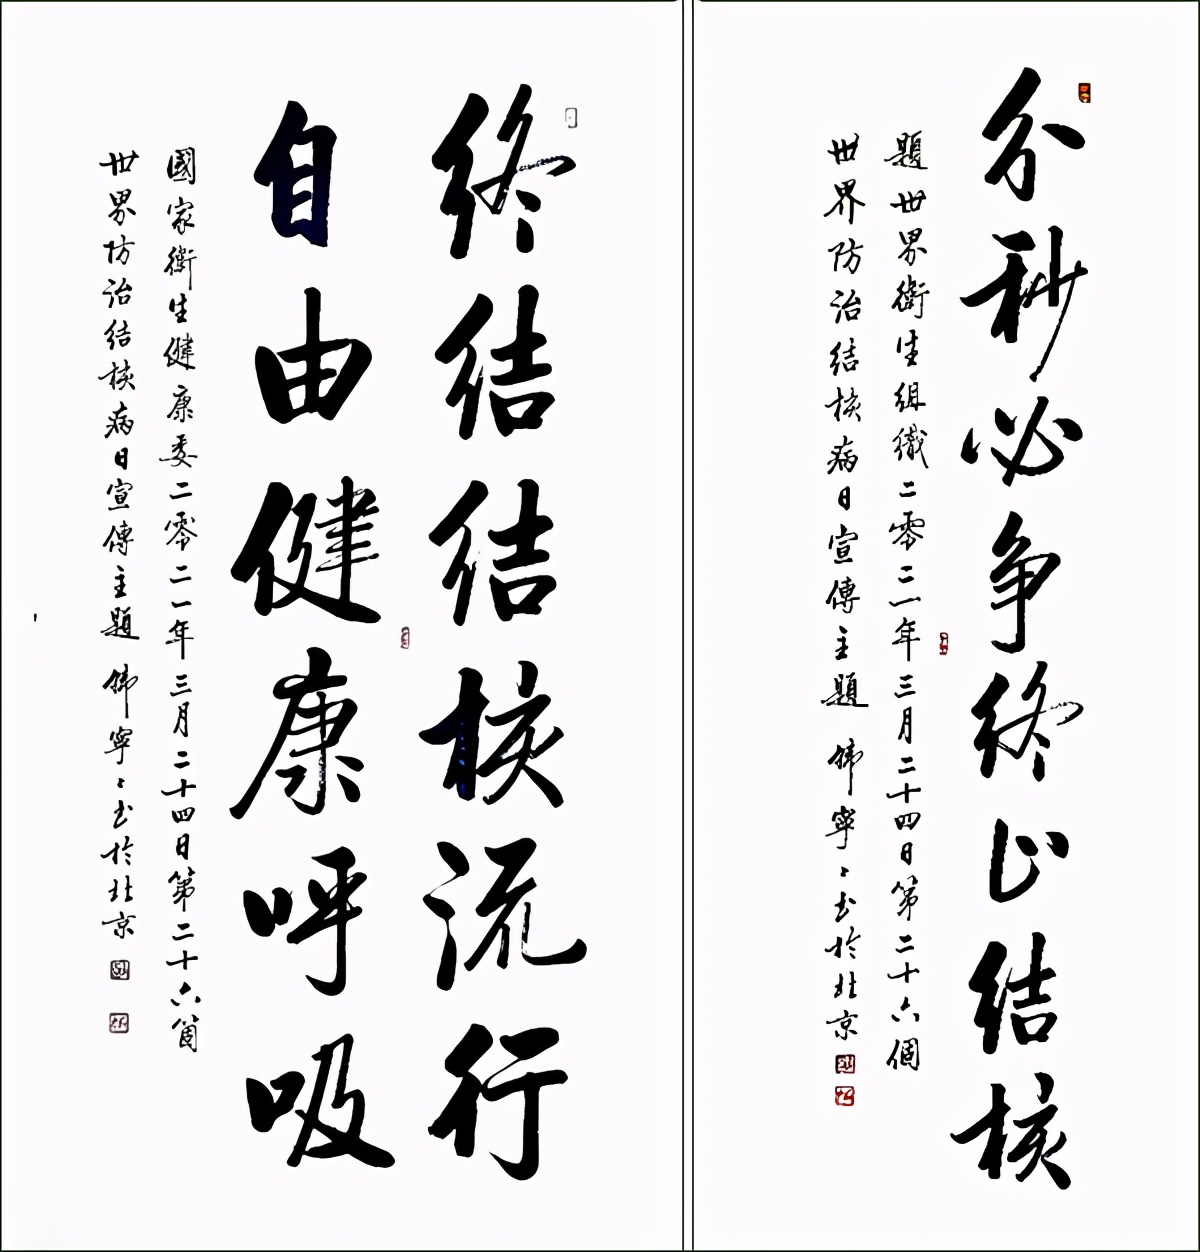 分秒必争终止结核
題世界衛生组織二零二一年三月二十四日第二十六個
世界防治结核病日宣傳主題 韩寧〻书於北京
终结结核流行
自由健康呼吸
國家衛生健康委二零二一年三月二十四日第二十六箇
世界防治结核病日宣傳主題 韩寧〻书於北京